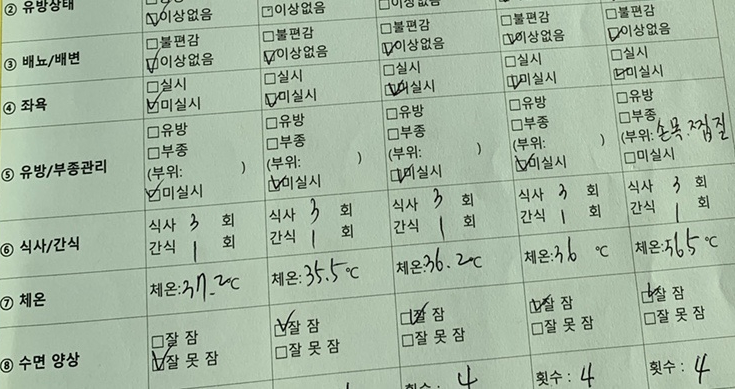 ② 유방상태
□이상없음 □이상없음 □이상없음 □이상없음 □이상없음
③ 배뇨/배변
□불편감 □불편감 □불편감 □불편감 □불편감
□이상없음 □이상없음 □이상없음 □이상없음 □이상없음
④ 좌욕
□실시 □실시 □실시 □실시 □실시
□미실시 □미실시 □미실시 □미실시 □미실시
⑤ 유방/부종관리
□유방 □유방 □유방 □유방 □유방
□부종 □부종 □부종 □부종 □부종
(부위: ) (부위: ) (부위: ) (부위: ) (부위: 손목
□미실시 □미실시 □미실시 □미실시 □미실시
⑥ 식사/간식
식사 3 회 식사 3 회 식사 3 회 식사 3 회 식사 3 회
간식 1 회 간식 1 회 간식 1 회 간식 1 회 간식 1 회
⑦ 체온
체온:37.2℃ 체온:35.5℃ 체온:36.2℃ 체온:36 ℃ 체온:36.5℃
⑧ 수면 양상
□잘 잠 □잘 잠 □잘 잠 □잘 잠 □잘 잠
□잘 못 잠 □잘 못 잠 □잘 못 잠 □잘 못 잠 □잘 못 잠
횟수 : 4 횟수 : 4 횟수 : 4